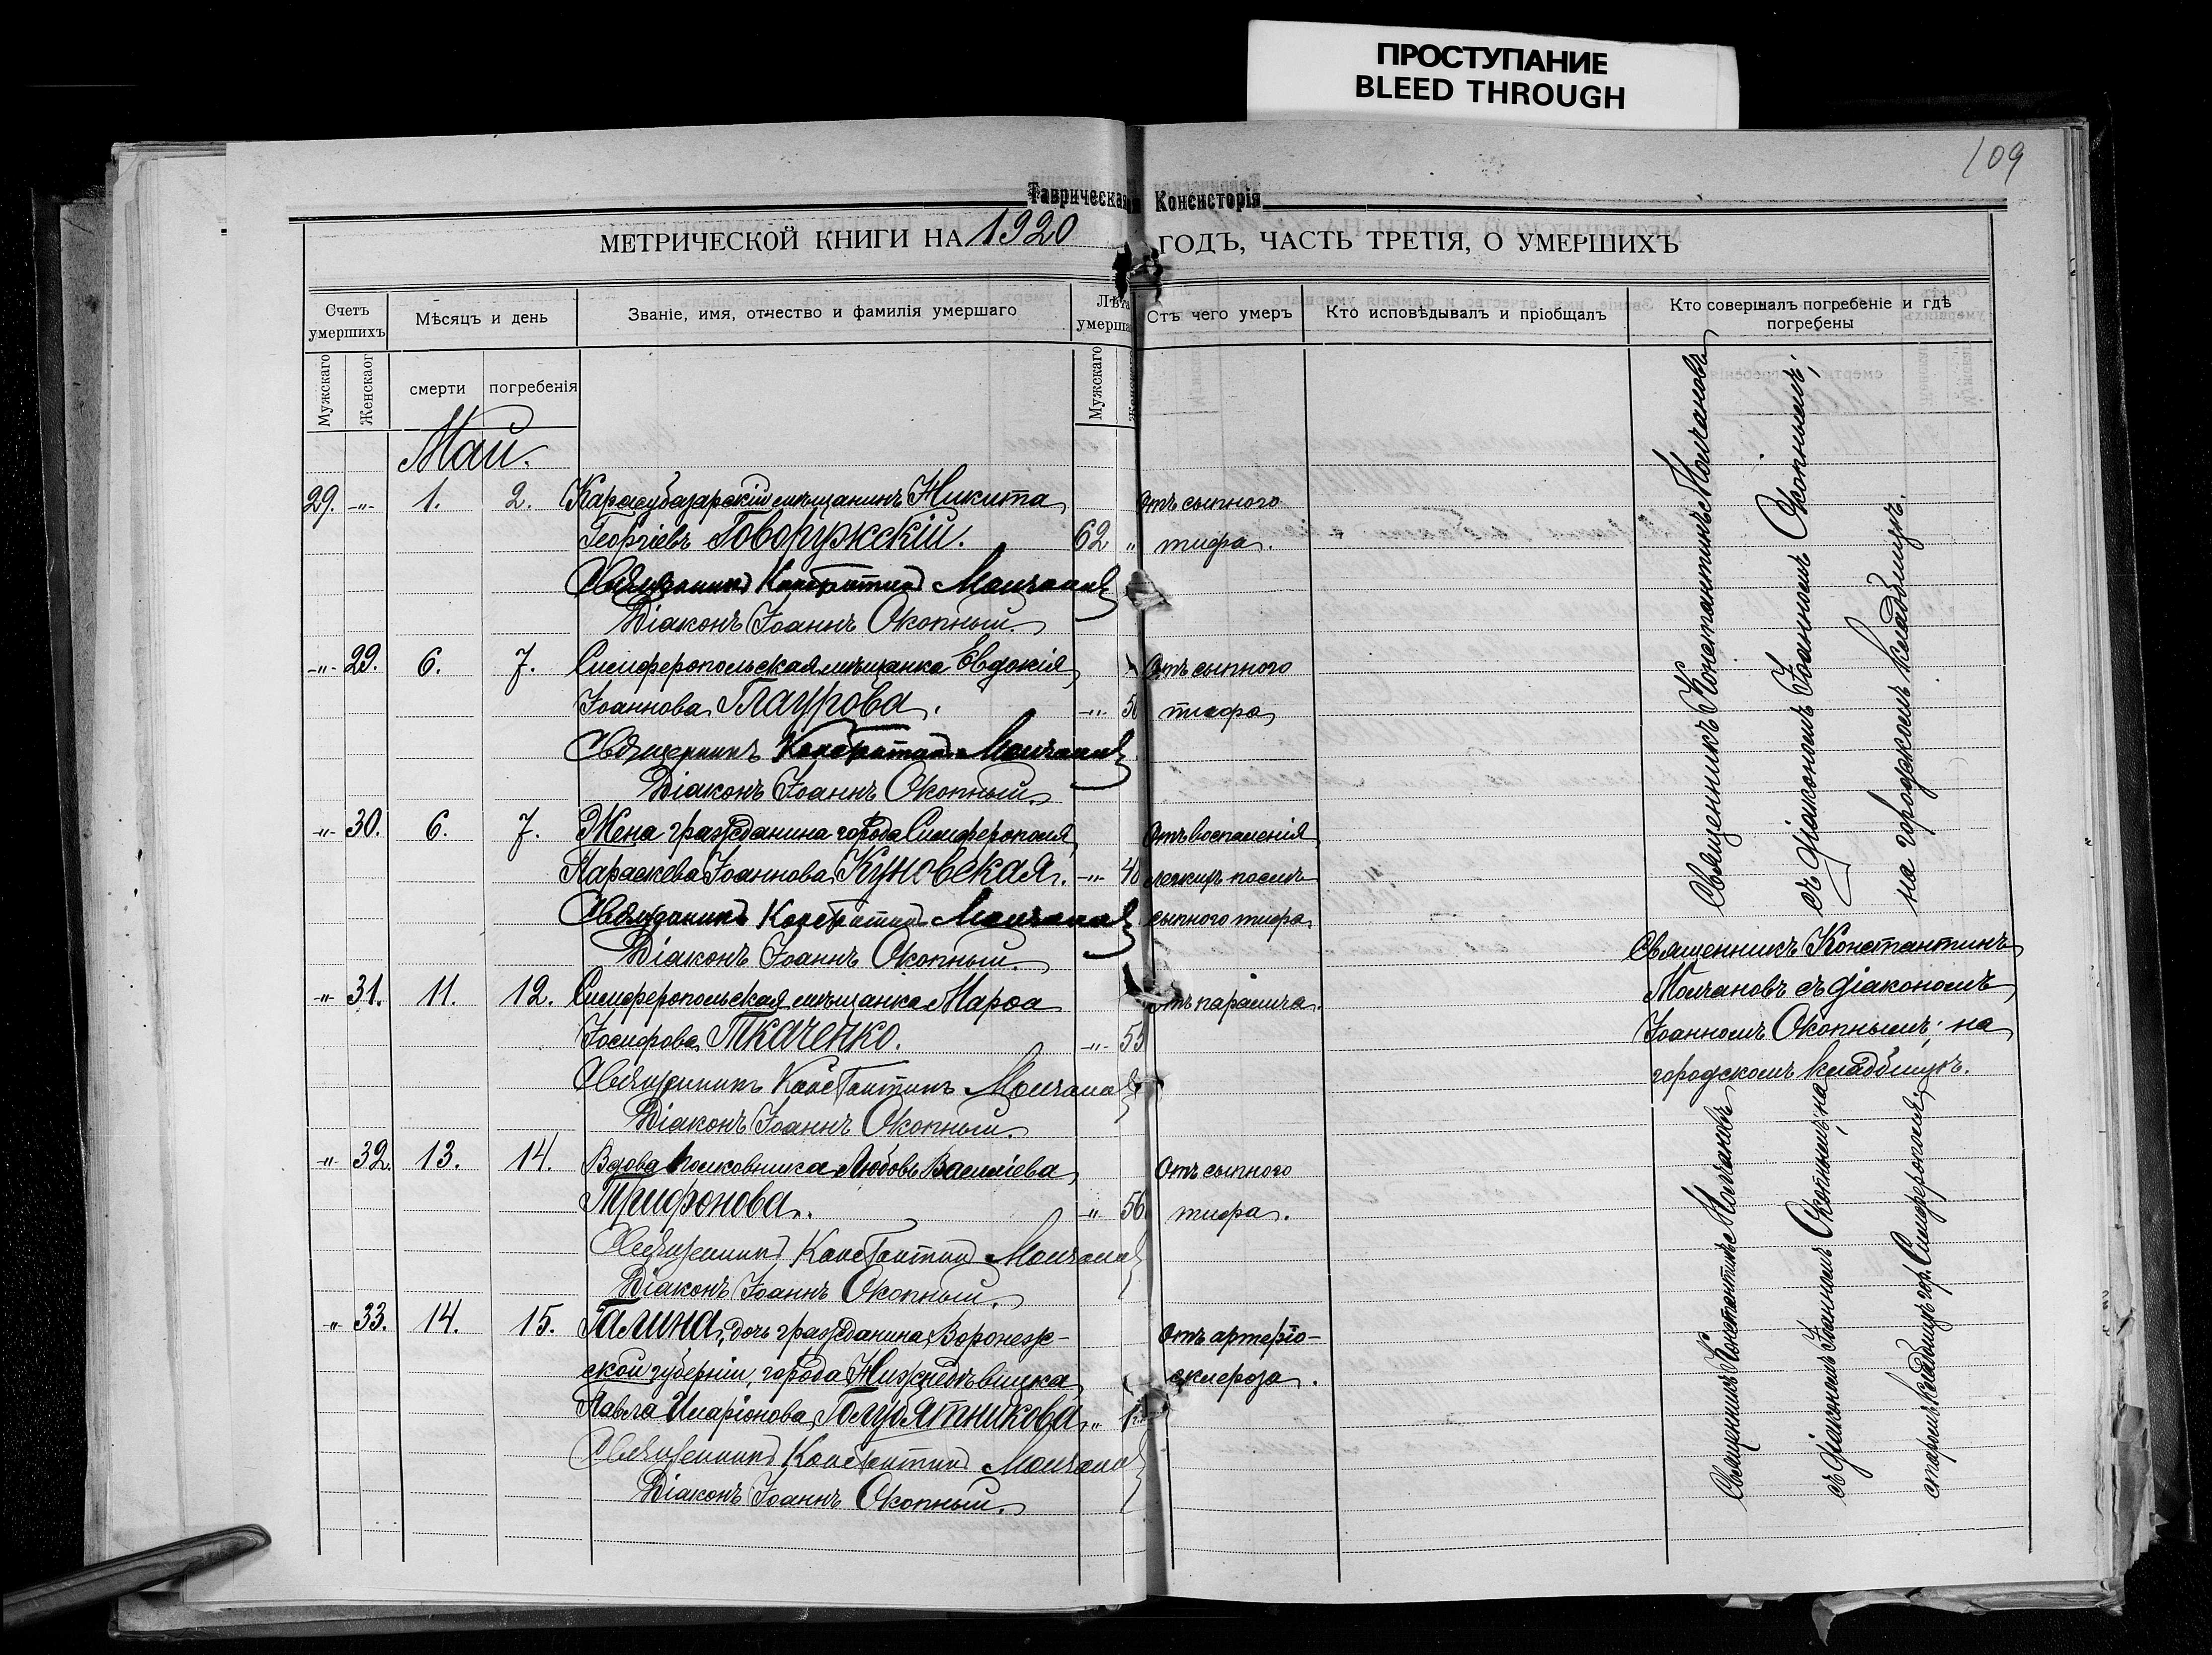 ПРОСТУПАНИЕ
BLEED THROUGH
109
Таврическая Консисторія
МЕТРИЧЕСКОЙ КНИГИ НА 1920 ГОДЪ, ЧАСТЬ ТРЕТІЯ, О УМЕРШИХЪ
Счетъ умершихъ
Мѣсяцъ и день
Званіе, имя, отчество и фамилія умершаго
Лѣта умерша
Отъ чего умеръ
Кто исповѣдывалъ и пріобщалъ
Кто совершалъ погребеніе и гдѣ погребены
Мужскаго
Женскаог
смерти
погребенія
Мужскаго
Май.
29. -"- 1. 2. Карасубазарскій мѣщанинъ Никита Отъ сыпного
Георгіевъ Говоружскій. 62 " тифа.
Священникъ Константинъ Молчановъ
Діаконъ Іоаннъ Окопный.
-"- 29. 6. 7. Симферопольская мѣщанка Евдокія Отъ сыпного
Іоаннова Глаурова. -"- 50 тифа
Священникъ Константинъ Молчановъ
Діаконъ Іоаннъ Окопный.
-"- 30. 6. 7. Жена гражданина города Симферополя Отъ воспаленія
Параскева Іоаннова Куновская. -"- 40 легкихъ послѣ
Священникъ Константинъ Молчановъ сыпного тифа
Діаконъ Іоаннъ Окопный.
-"- 31. 11. 12. Симферопольская мѣщанка Марѳа Отъ паралича.
Іосифова Ткаченко. -"- 55
Священникъ Константинъ Молчановъ
Діаконъ Іоаннъ Окопный.
-"- 32. 13. 14. Вдова полковника Любовь Василіева Отъ сыпного
Трифонова. -"- 56 тифа.
Священникъ Константинъ Молчановъ
Діаконъ Іоаннъ Окопный.
-"- 33. 14. 15. Галина, дочь гражданина Воронеж- Отъ артеріо-
ской губерніи, города Нижнедѣвицка склероза.
Павла Иларіонова Голубятникова "
Священникъ Константинъ Молчановъ
Діаконъ Іоаннъ Окопный.
Священникъ Константинъ Молчановъ
съ діакономъ Іоанномъ Окопнымъ;
на городскомъ кладбищѣ.
Священникъ Константинъ
Молчановъ съ діакономъ
Іоанномъ Окопнымъ; на
городскомъ кладбищѣ.
Священникъ Константинъ Молчановъ
съ діакономъ Іоанномъ Окопнымъ; на
старомъ кладбищѣ гор. Симферополя.